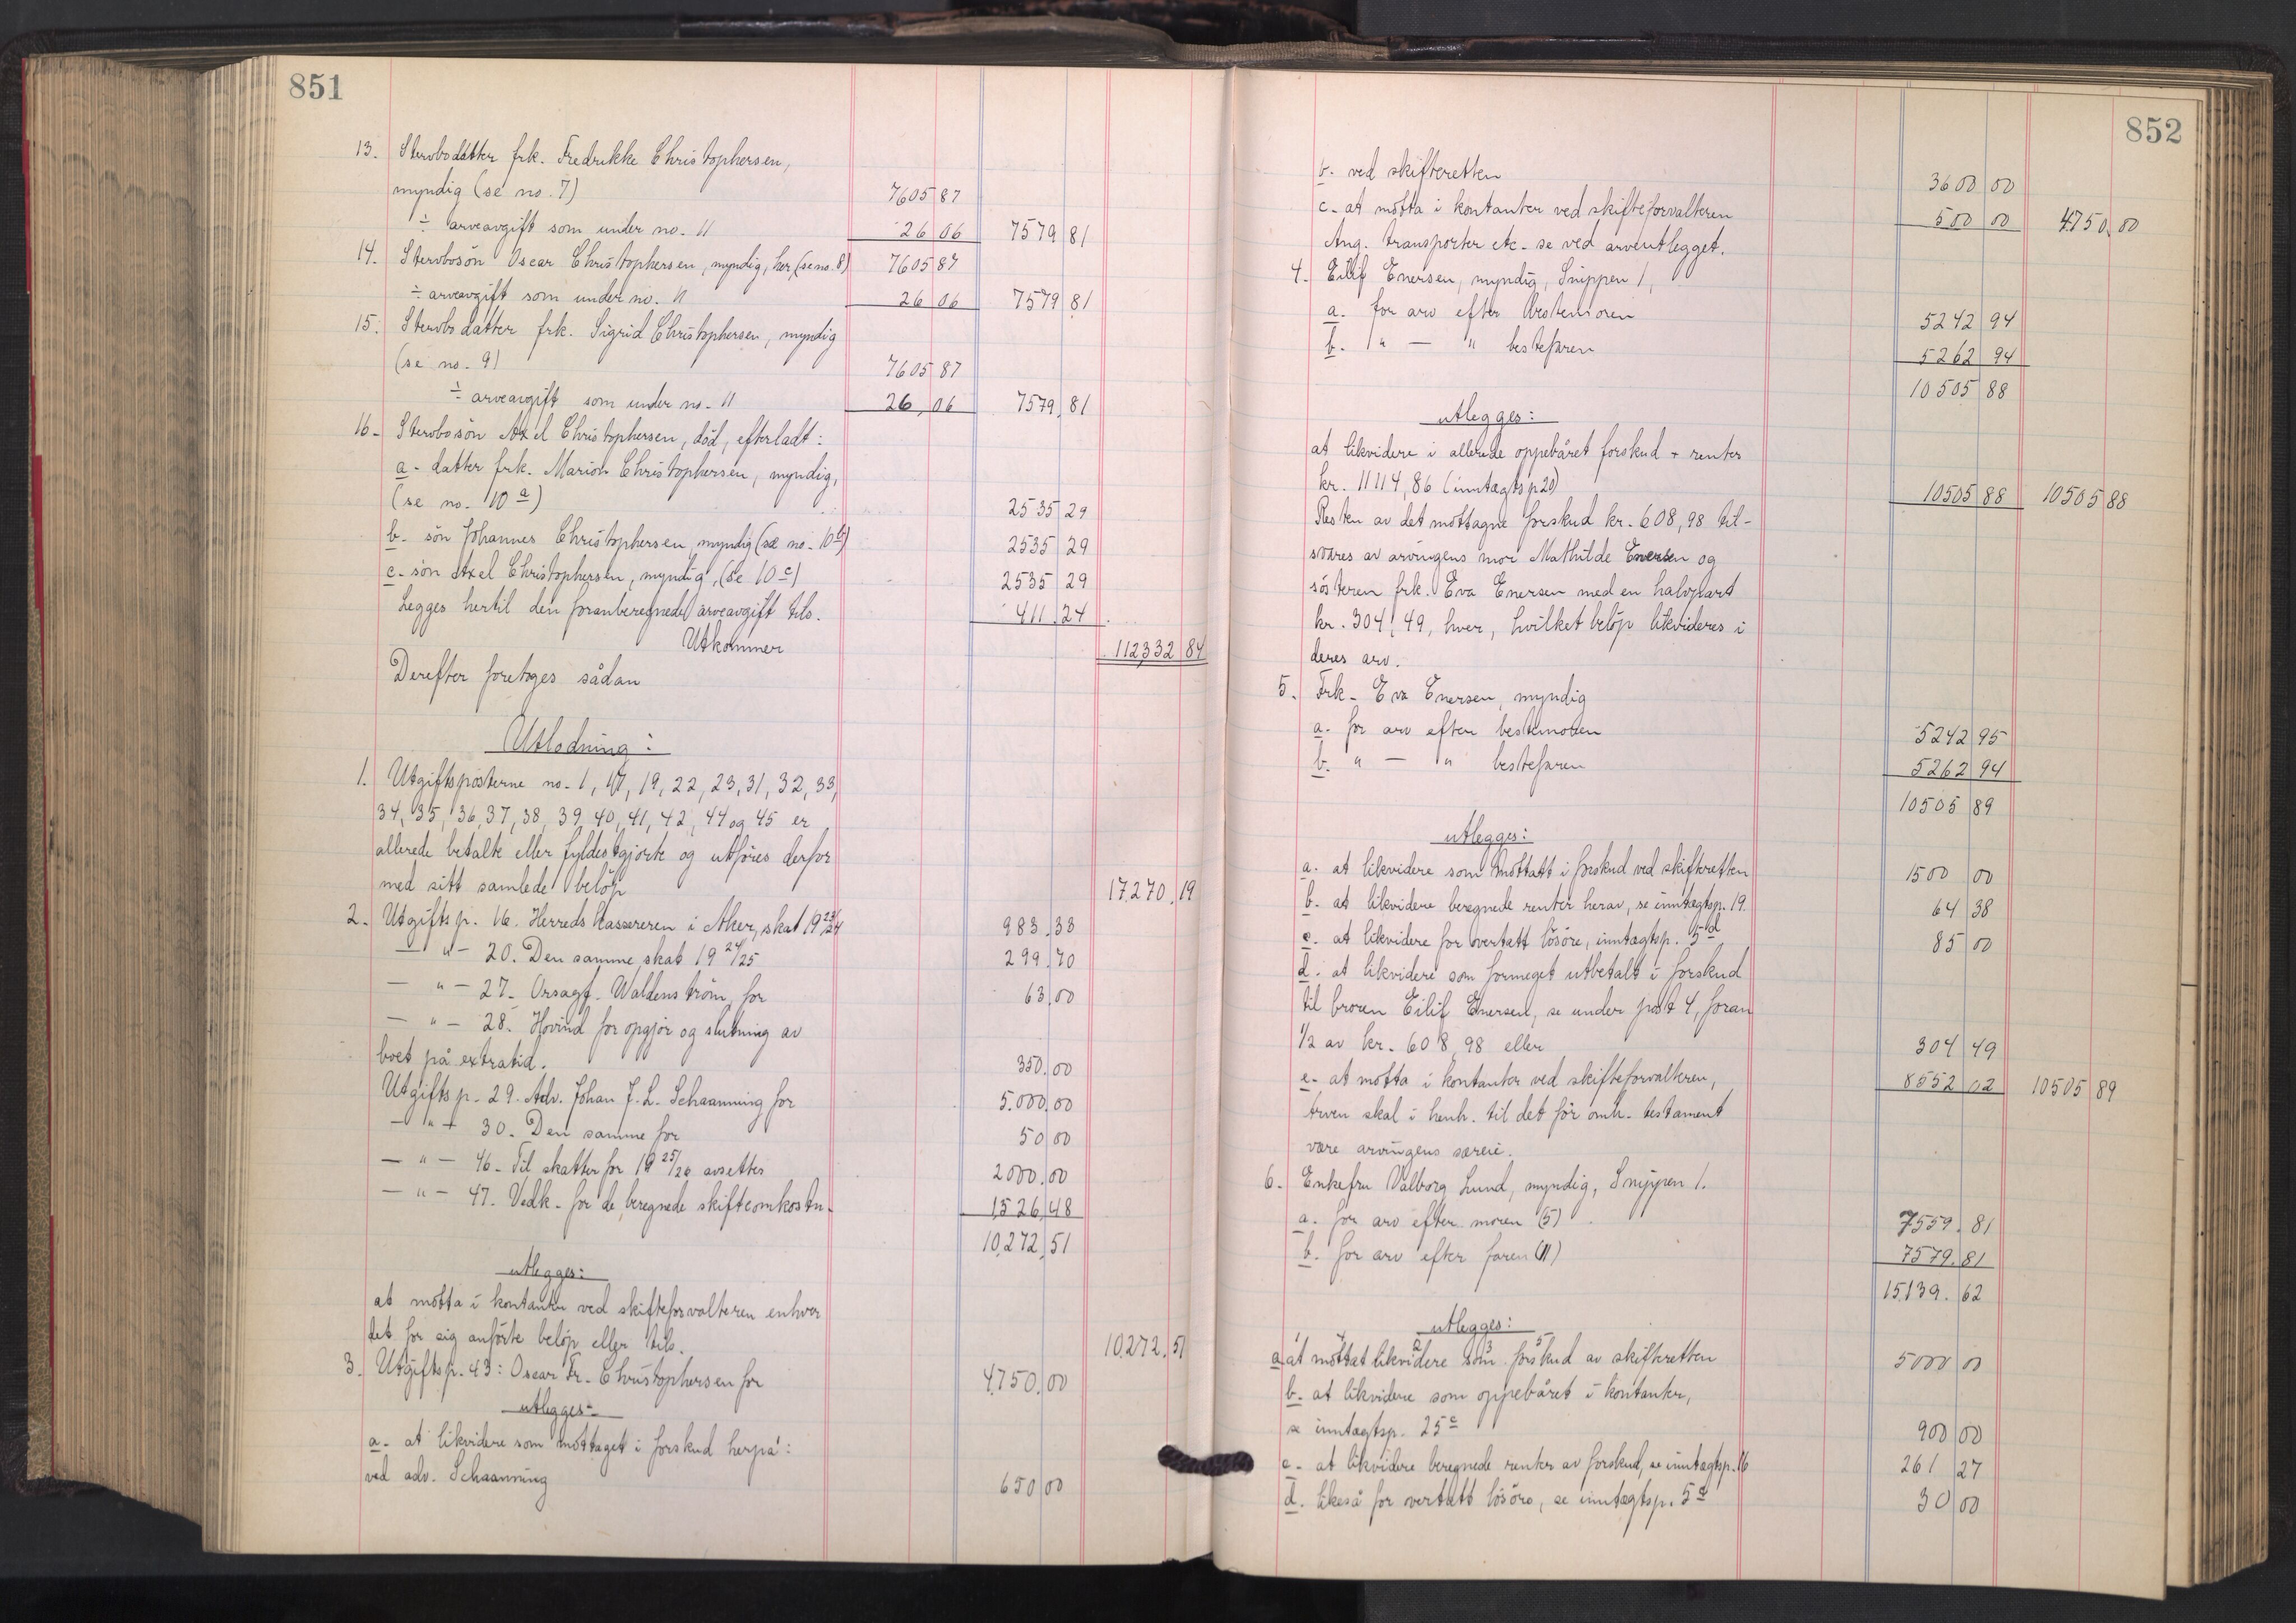 851
13. Stervbodatter frk. Fredrikke Christophersen,
myndig (se no. 7) 7605 87
÷ arveavgift som under no. 11 26 06 7579 81
14. Stervbosön Oscar Christophersen, myndig, her, (se no. 8) 7605 87
÷ arveavgift som under no. 11 26 06 7579 81
15. Stervbodatter frk. Sigrid Christophersen, myndig
(se no. 9) 7605 87
÷ arveavgift som under no. 11 26,06 7579,81
16. Stervbosön Axel Christophersen, död, efterladt:
a. datter frk. Marion Christophersen, myndig,
(se no. 10 a) 2535 29
b. sön Johannes Christophersen myndig (se no. 10 b) 2535 29
c. sön Axel Christophersen, myndig, (se 10 c) 2535 29
Legges hertil den foranberegnede arveavgift tils. 411.24
Utkommer 112332 84
Derefter foretoges sådan
Utlodning:
1. Utgiftsposterne no. 1, 17, 19, 22, 23, 31, 32, 33,
34, 35, 36, 37, 38, 39, 40, 41, 42, 44 og 45 er
allerede betalte eller fyldestgjorte og utföres derfor
med sitt samlede belöp 17.270.19
2. Utgiftsp. 16. Herredskassereren i Aker, skat 19 23/24 983.33
— " — 20. Den samme, skat 19 24/25 299.70
— " — 27. Orsagf. Waldenström, for 63.00
— " — 28. Hovind for opgjör og slutning av
boet på extratid. 350.00
Utgiftsp. 29. Adv. Johan J. L. Schaanning for 5.000.00
— " — 30. Den samme for 50 00
— " — 46. Til skatter for 19 25/26 avsettes 2000.00
— " — 47. Vedk. for de beregnede skifteomkostn. 1526.48
10.272.51
utlegges:
at motta i kontanter ved skifteforvalteren enhver
det for sig anförte belöp eller tils. 10.272.51
3. Utgiftsp. 43: Oscar Fr. Christophersen for 4.750.00
utlegges:
a. at likvidere som mottaget i forskud herpå:
ved adv. Schaanning 650 00
852
b. ved skifteretten 3600 00
c. at motta i kontanter ved skifteforvalteren 500 00 4.750.00
Ang. transporter etc. se ved arveutlegget.
4. Eilif Enersen, myndig, Snippen 1,
a. for arv efter bestemoren 5242 94
b. " — " bestefaren 5262 94
10505 88
utlegges:
at likvidere i allerede oppebåret forskud + renter
kr. 11114,86 (inntægtsp 20) 10505 88 10505 88
Resten av det mottagne forskud kr. 608,98 til-
svares av arvingens mor Mathilde Enersen og
sösteren frk. Eva Enersen med en halvpart
kr. 304,49, hver, hvilket belöp likvideres i
deres arv.
5. Frk. Eva Enersen, myndig
a. for arv efter bestemoren 5242 95
b. " — " bestefaren 5262 94
10505 89
utlegges:
a. at likvidere som mottatt i forskud ved skifteretten 1500 00
b. at likvidere beregnede renter herav, se inntægtsp. 19. 64 38
c. at likvidere for overtatt lösöre, inntægtsp. 5 d 85 00
d. at likvidere som formeget utbetalt i forskud
til broren Eilif Enersen, se under post 4, foran
1/2 av kr. 608,98 eller 304 49
e. at motta i kontanter ved skifteforvalteren, 8552 02 10505 89
Arven skal i henh. til det för omh. testament
være arvingens særeie.
6. Enkefru Valborg Lund, myndig, Snippen 1.
a. for arv efter moren (5) 7559.81
b. for arv efter faren (11) 7579.81
15139.62
utlegges:
a. at mottat likvidere som forskud av skifteretten 5000 00
b. at likvidere som oppebåret i kontanter,
se inntægtsp. 25 c 900 00
c. at likvidere beregnede renter av forskud, se inntægtsp. 16 261 27
d. likeså for overtatt lösöre, se inntægtsp. 5 a 30 00